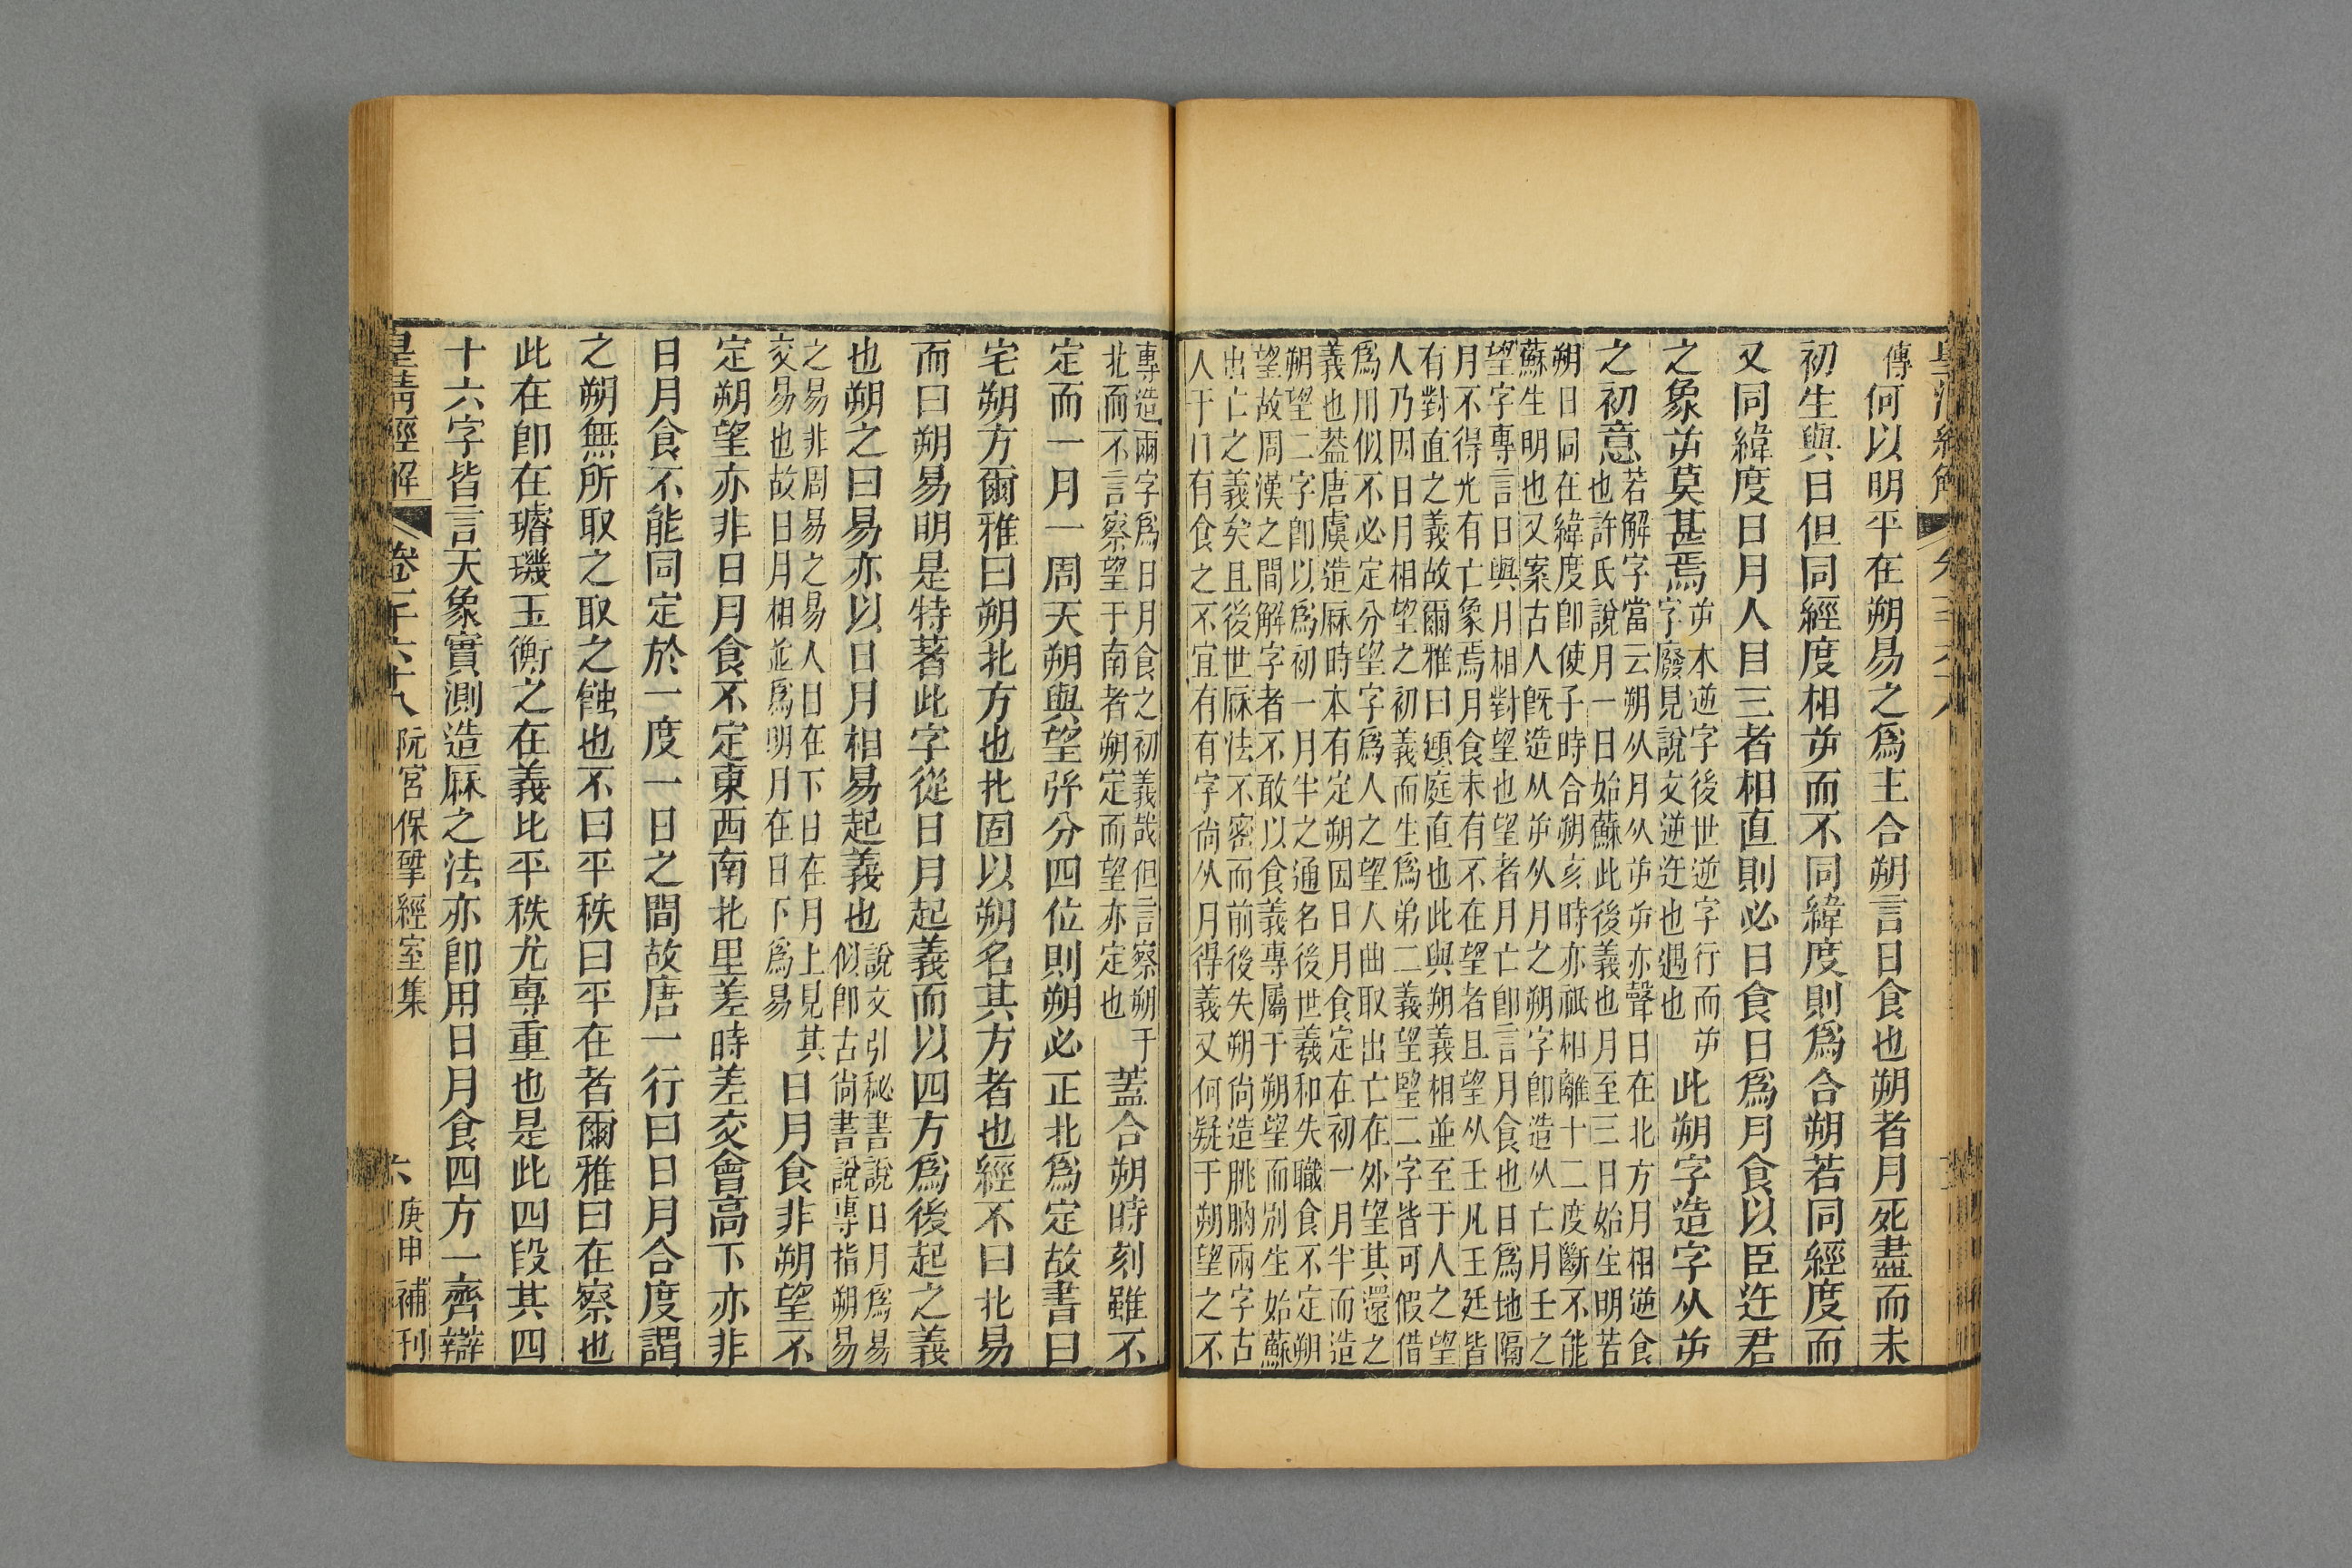 傳何以明平在朔易之爲主合朔言日食也朔者月死盡而未
初生與日但同經度相屰而不同緯度則爲合朔若同經度而
又同緯度日月人目三者相直則必日食日爲月食以臣迕君
之象屰莫甚焉屰本逆字後世逆字行而屰字廢見說文逆迕也遇也此朔字造字从屰
之初意若解字當云朔从月从屰屰亦聲日在北方月相逆食也許氏說月一日始蘇此後義也月至三日始生明若
朔日同在緯度卽使子時合朔亥時亦祇相離十二度斷不能
蘇生明也又案古人旣造从屰从月之朔字卽造从亡月壬之
望字專言日與月相對望也望者月亡卽言月食也日爲地隔
月不得光有亡象焉月食未有不在望者且望从王凡王廷皆
有對直之義故爾雅曰頲庭直也此與朔義相並至于人之望
人乃因日月相望之初義而生爲弟二義望朢二字皆可假借
爲用似不必定分望字爲人之望人曲取出亡在外望其還之
義也葢唐虞造厤時本有定朔因日月食定在初一月半而造
朔望二字卽以爲初一月半之通名後世羲和失職食不定朔
望故周漢之間解字者不敢以食義專屬于朔望而別生始蘇
出亡之義矣且後世厤法不密而前後失朔尚造朓朒兩字古
人于日有食之不宜有有字尚从月得義又何疑于朔望之不
專造兩字爲日月食之初義哉但言察朔于北而不言察望于南者朔定而望亦定也蓋合朔時刻雖不
定而一月一周天朔與望分四位則朔必正北爲定故書曰
宅朔方爾雅曰朔北方也北固以朔名其方者也經不曰北易
而曰朔易明是特著此字從日月起義而以四方爲後起之義
也朔之曰易亦以日月相易起義也說文引秘書說日月爲易似卽古尚書說專指朔易
之易非周易之易人日在下日在月上見其交易也故日月相並爲明月在日下爲易日月食非朔望不
定朔望亦非日月食不定東西南北里差時差交會高下亦非
日月食不能同定於一度一日之間故唐一行曰日月合度謂
之朔無所取之取之蝕也不曰平秩曰平在者爾雅曰在察也
此在卽在璿璣玉衡之在義比平秩尤專重也是此四段其四
十六字皆言天象實測造厤之法亦卽用日月食四方一齊辯
皇清經解 卷一千六十八 阮宮保揅經室集 六 庚申補刊